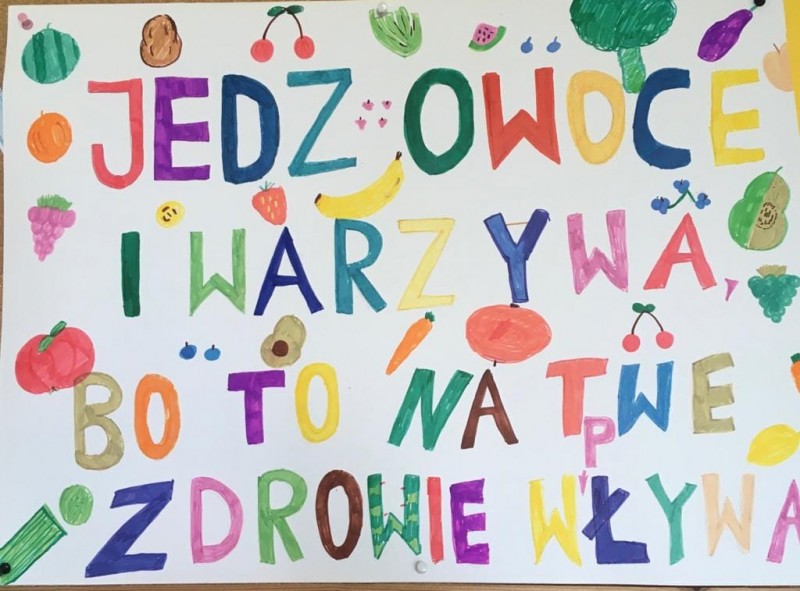 JEDZ OWOCE
I WARZYWA,
BO TO NA TWE
ZDROWIE WPŁYWA